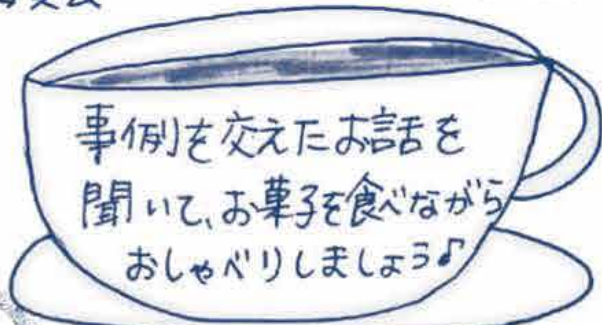 事例を交えたお話を
聞いて、お菓子を食べながら
おしゃべりしましょう♪